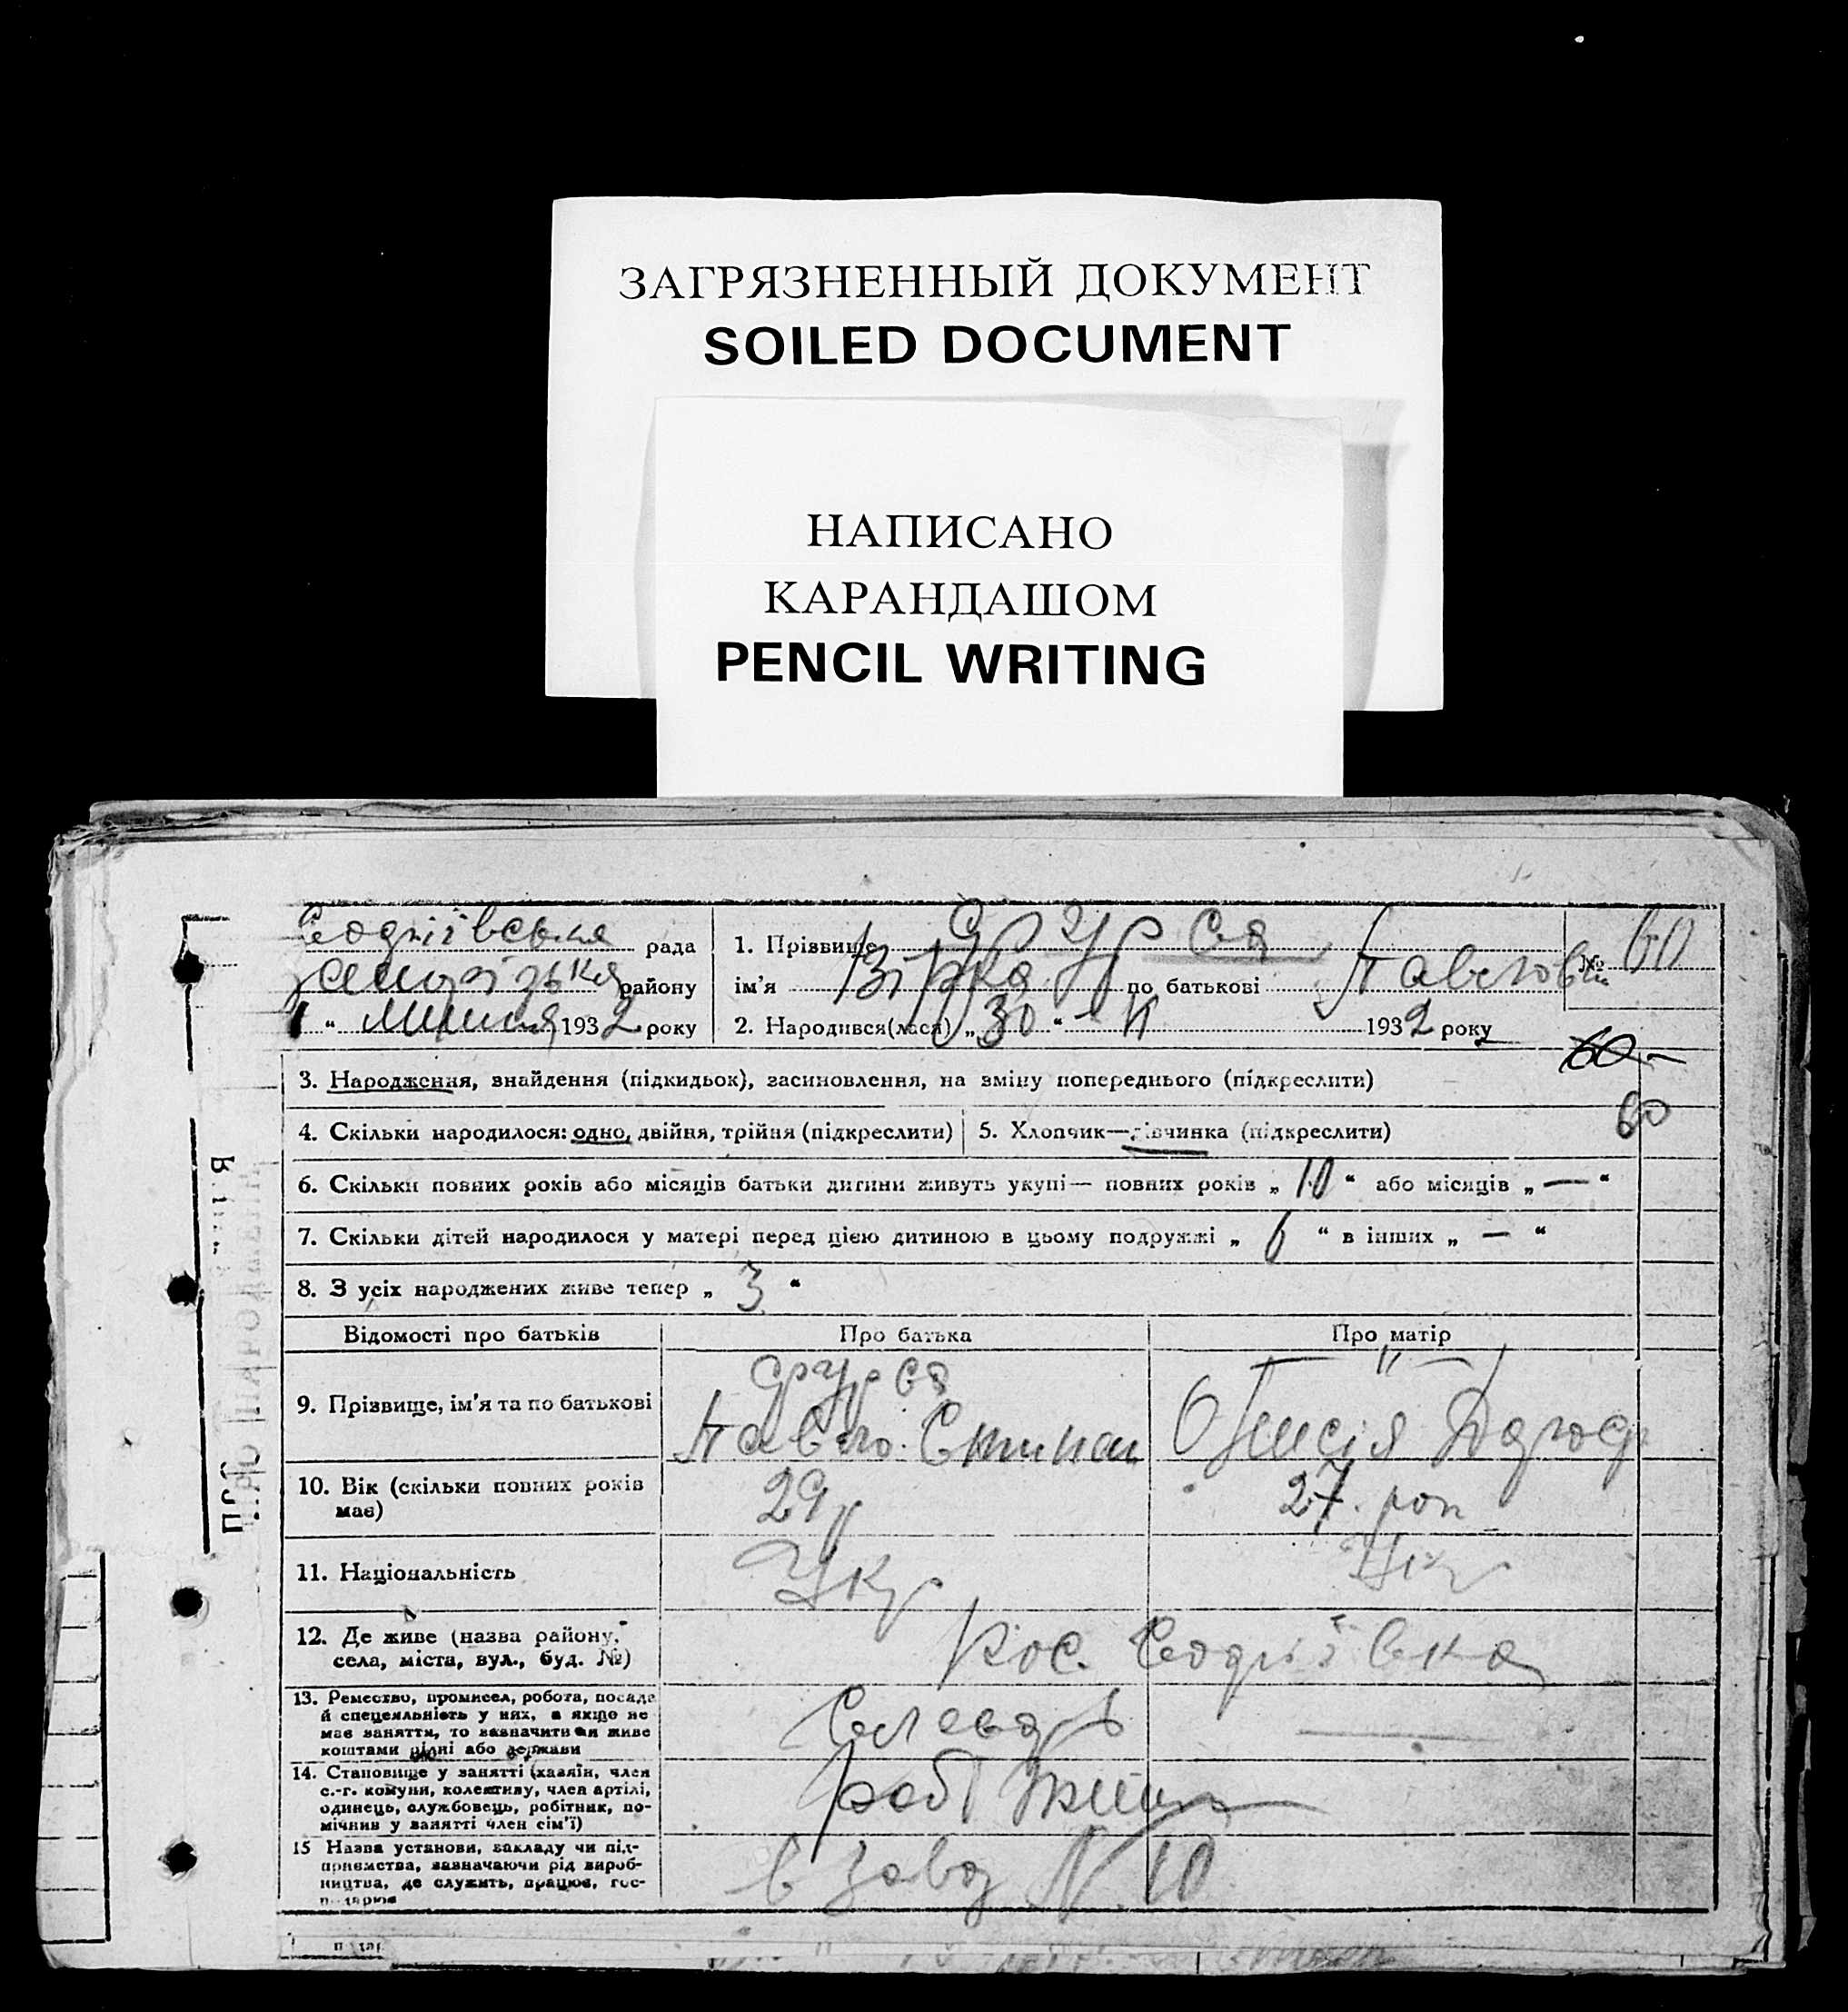 ЗАГРЯЗНЕННЫЙ ДОКУМЕНТ
SOILED DOCUMENT
НАПИСАНО
КАРАНДАШОМ
PENCIL WRITING
Софіївська рада
району
1 " 1932 року
1. Прізвище Фурса
ім'я по батькові Павлов
№ 60
2. Народився(лася) „30“ 1932 року
60
3. Народження, знайдення (підкидьок), засиновлення, на зміну попереднього (підкреслити)
4. Скільки народилося: одно, двійня, трійня (підкреслити)
5. Хлопчик—дівчинка (підкреслити)
60
6. Скільки повних років або місяців батьки дитини живуть укупі— повних років „10“ або місяців „—“
7. Скільки дітей народилося у матері перед цією дитиною в цьому подружжі „6“ в інших „—“
8. З усіх народжених живе тепер „3“
Відомості про батьків
Про батька
Про матір
9. Прізвище, ім'я та по батькові
Фурса
— " —
Павло
10. Вік (скільки повних років має)
29р
27. рок
11. Національність
Укр
Укр
12. Де живе (назва району, села, міста, вул., буд. №)
Пос. Софіївка
13. Ремество, промисел, робота, посада й спецеяльність у них, а якщо не має заняття, то зазначити як живе коштами рідні або держави
Слюсарь
—
14. Становище у занятті (хазяїн, член с.-г. комуни, колективу, член артілі, одинець, службовець, робітник, помічник у занятті член сім'ї)
роб
15 Назва установи, закладу чи підприємства, зазначаючи рід виробництва, де служить, працює,
в завод N 10